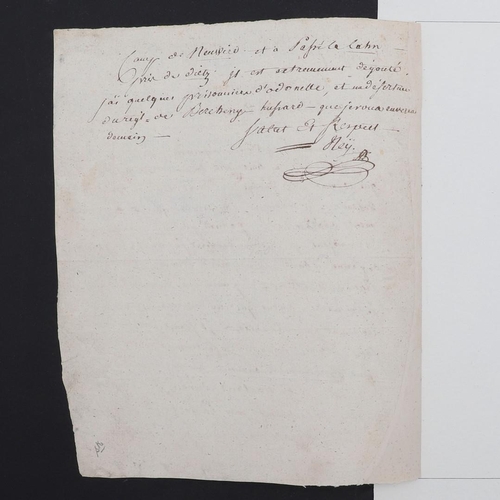 Camp de Neuvied et a passé la Lahn —
près de dietz il est extremement dégouté.
j'ai quelques prisonniers d'ordonnance, et un deserteur
du régt. de Bercheny hussard — que je vous enverrai
demain —
Salut et Respect
Ney.